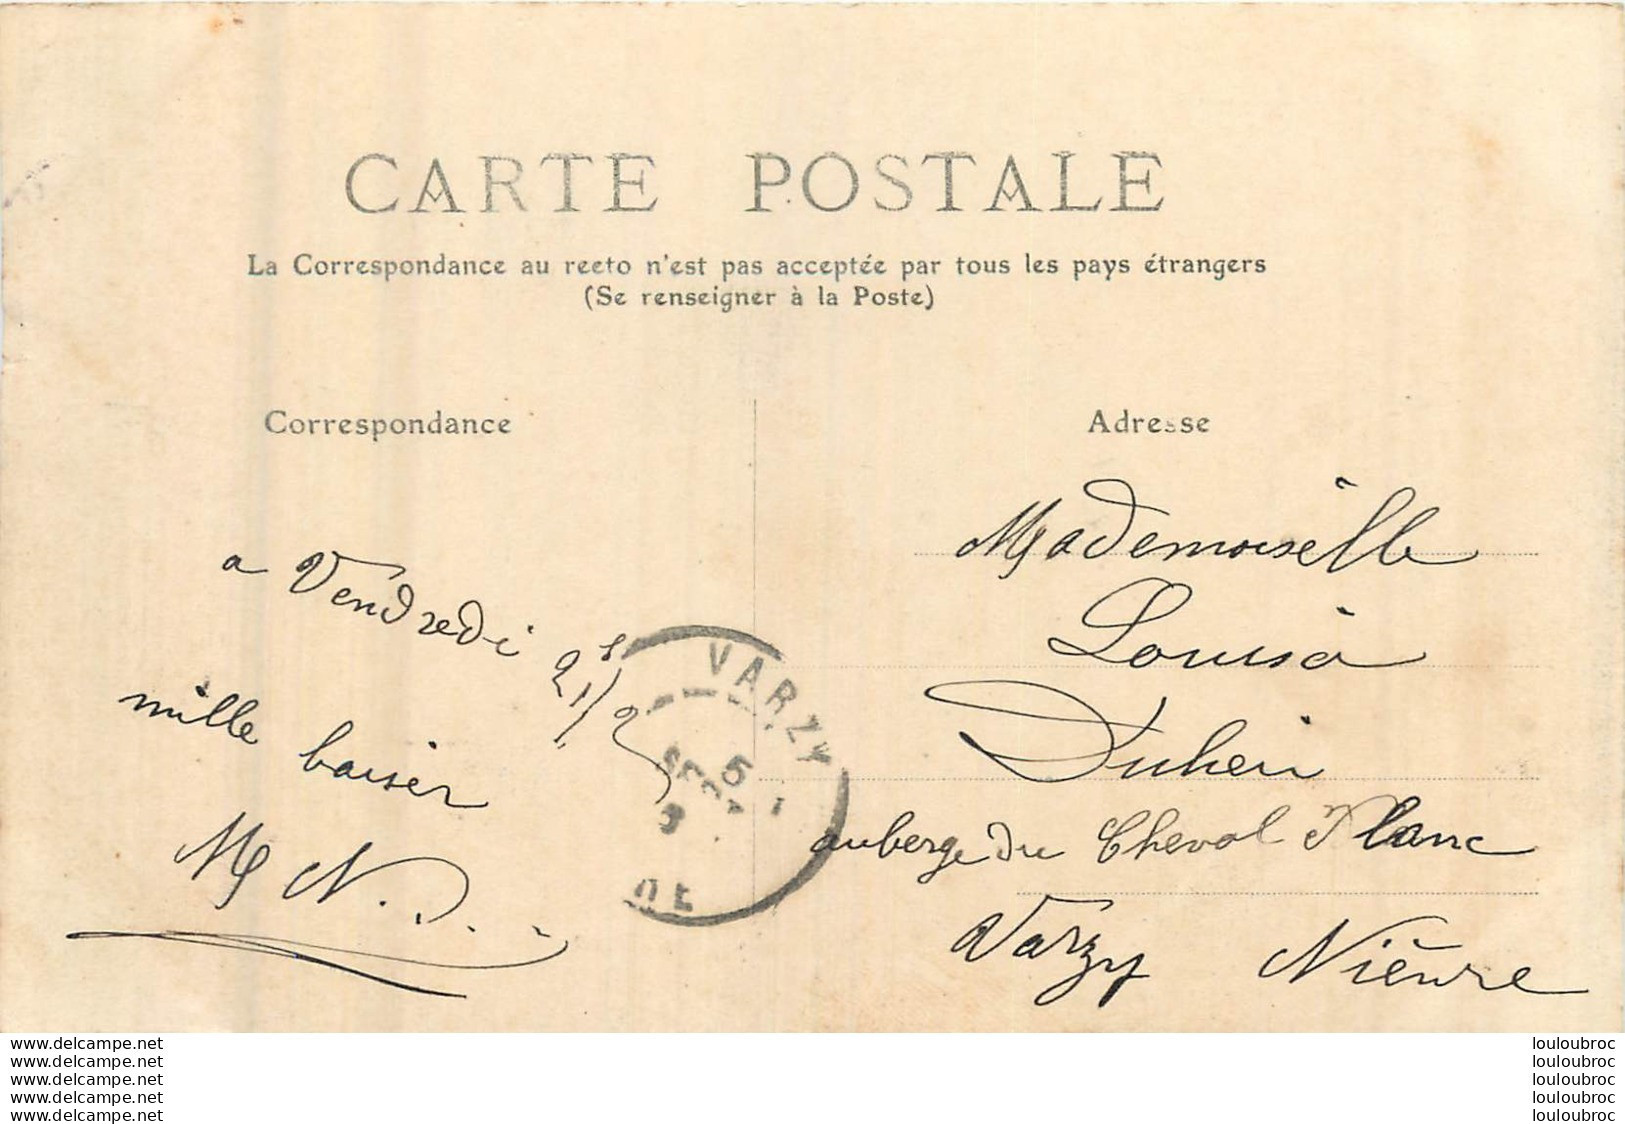 CARTE POSTALE
La Correspondance au recto n'est pas acceptée par tous les pays étrangers
(Se renseigner à la Poste)
Correspondance
a Vendredi
mille baiser
M N. D.
Adresse
Mademoiselle
Louisa
auberge du Cheval Blanc
Varzy Nièvre
VARZY
5
SEPT
www.delcampe.net
www.delcampe.net
www.delcampe.net
www.delcampe.net
www.delcampe.net
louloubroc
louloubroc
louloubroc
louloubroc
louloubroc